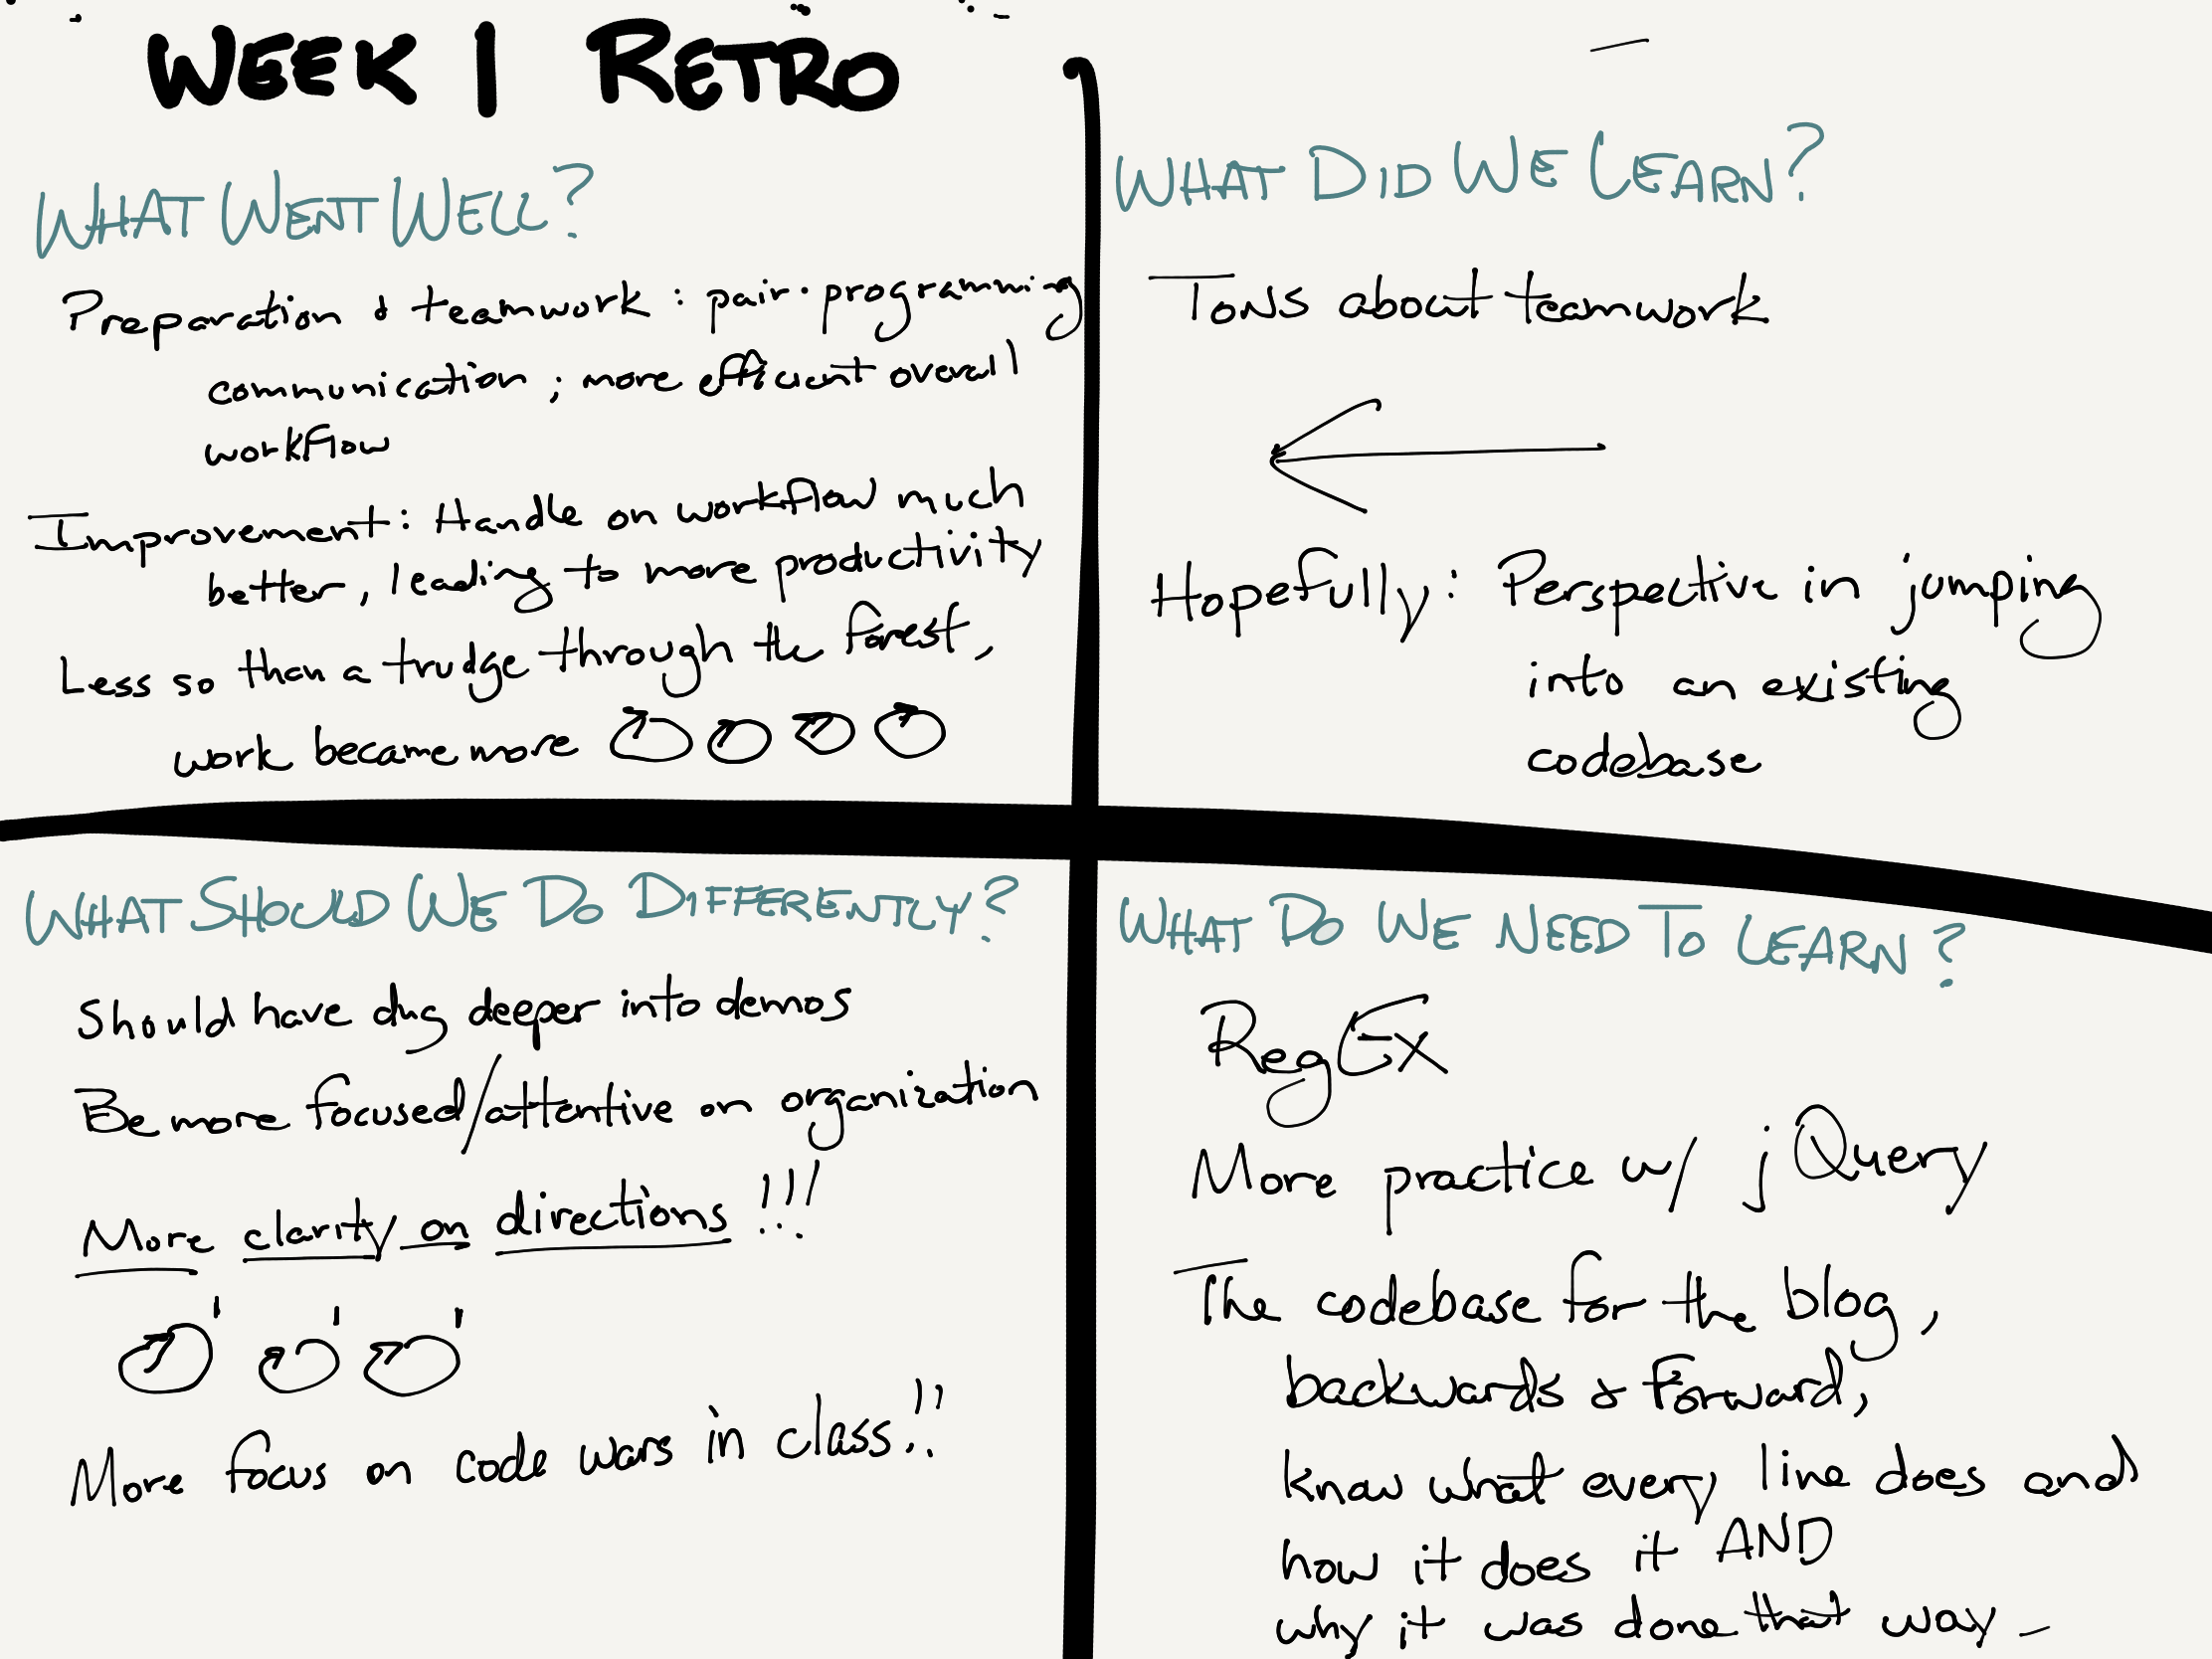 WEEK 1 RETRO
WHAT WENT WELL?
Preparation & teamwork : pair-programming
communication ; more efficient overall
workflow
Improvement: Handle on workflow much
better, leading to more productivity
Less so than a trudge through the forest,
work became more
WHAT DID WE LEARN?
Tons about teamwork
Hopefully: Perspective in jumping
into an existing
codebase
WHAT SHOULD WE DO DIFFERENTLY?
Should have dug deeper into demos
Be more focused/attentive on organization
More clarity on directions!!!
More focus on code wars in class!!
WHAT DO WE NEED TO LEARN?
RegEx
More practice w/ jQuery
The codebase for the blog,
backwards & forward,
know what every line does and
how it does it AND
why it was done that way -